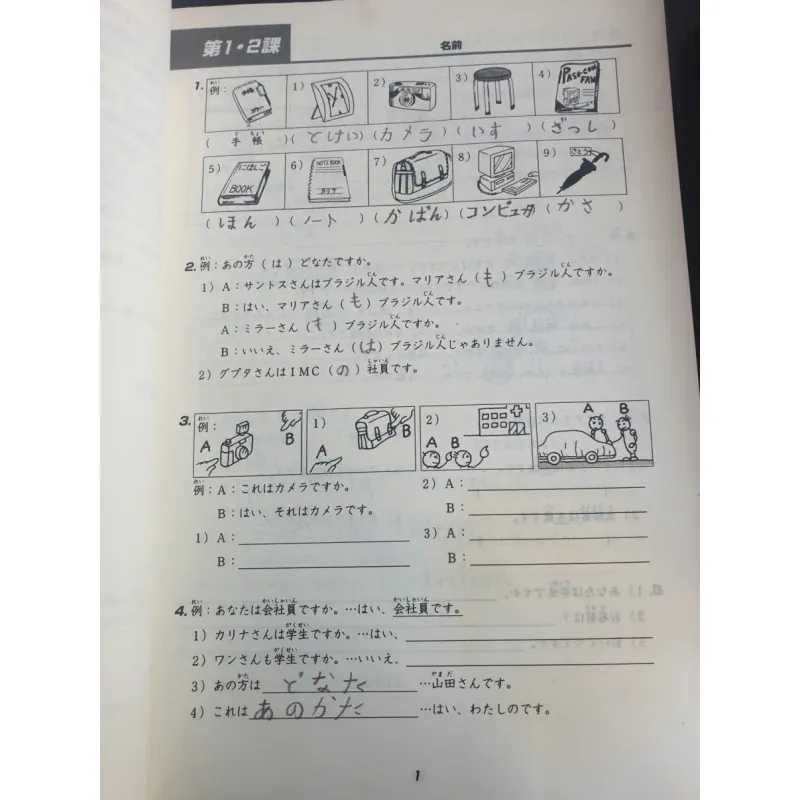 第1・2課 名前
1. 例： 1） 2） 3） 4）
PASO-COM FAN
（ 手帳 ）（ とけい ）（ カメラ ）（ いす ）（ ざっし ）
5） 6） 7） 8） 9）
にほんご BOOK NOTE BOOK カリナ さとう
（ ほん ）（ ノート ）（ かばん ）（ コンピュタ ）（ かさ ）
2. 例：あの方（ は ）どなたですか。
1） A：サントスさんはブラジル人です。マリアさん（ も ）ブラジル人ですか。
B：はい、マリアさん（ も ）ブラジル人です。
A：ミラーさん（ も ）ブラジル人ですか。
B：いいえ、ミラーさん（ は ）ブラジル人じゃありません。
2）グプタさんはIMC（ の ）社員です。
3. 例： A B 1） A B 2） A B 3） A B
例：A：これはカメラですか。
B：はい、それはカメラです。
1） A：
B：
2） A：
B：
3） A：
B：
4. 例：あなたは会社員ですか。…はい、会社員です。
1）カリナさんは学生ですか。…はい、
2）ワンさんも学生ですか。…いいえ、
3）あの方は どなた …山田さんです。
4）これは あのかた …はい、わたしのです。
1